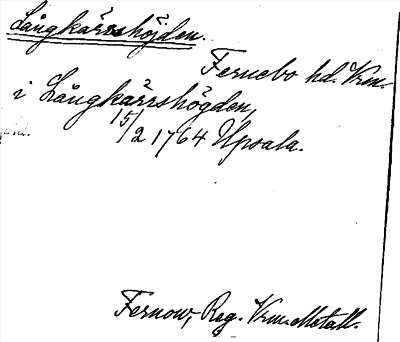 Långkärrshöjden.
Fernebo hd. Vrm.
i Långkärrshögden,
15/2 1764 Upsala.
Fernow, Reg. Vrm.